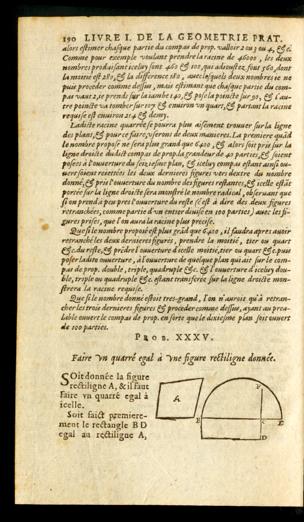 190 LIVRE I. DE LA GEOMETRIE PRAT.
alors estimer chasque partie du compas de prop. valloir 2 ou 3 ou 4, &c.
Comme pour exemple voulant prendre la racine de 46000, les deux
nombres produisant iceluy sont 460 & 100, qui adioustez font 560, dont
la moitié est 280, & la difference 180, avec lesquels deux nombres ie ne
puis proceder comme dessus, mais estimant que chaque partie du compas
vaut 2, ie prends sur la iambe 140, & pose la poincte sur 90, & l'autre
poincte va tomber sur 107 & environ un quart, & partant la racine
requise est environ 214 & demy.
Ladicte racine quarrée se pourra plus aisément trouver sur la ligne
des plans, & pour ce faire, userons de deux manieres. La premiere quand
le nombre proposé ne sera plus grand que 6400, & alors soit pris sur la
ligne droicte dudict compas de prop. la grandeur de 40 parties, & soient
posées à l'ouverture du seiziesme plan, & iceluy compas estant ainsi ouvert
soient reiettées les deux dernieres figures vers dextre du nombre
donné, & pris l'ouverture du nombre des figures restantes, & icelle estant
portée sur la ligne droicte sera monstré le nombre radical, observant que
si on prend à peu pres l'ouverture du reste (c'est à dire des deux figures
retranchées, comme partie d'un entier divisé en 100 parties) avec les figures
prises, que l'on aura la racine plus precise.
Que si le nombre proposé est plus grād que 6400, il faudra apres avoir
retranché les deux dernieres figures, prendre la moitié, tier ou quart
&c. du reste, & prēdre l'ouverture d'icelle moitié, tier ou quart &c. puis
poser ladite ouverture, à l'ouverture de quelque plan qui ait sur le compas
de prop. double, triple, quadruple &c. & l'ouverture d'iceluy double,
triple ou quadruple &c. estant transferée sur la ligne droicte monstrera
la racine requise.
Que si le nombre donné estoit tres-grand, l'on n'auroit qu'à retrancher
les trois dernieres figures & proceder comme dessus, ayant au prealable
ouvert le compas de prop. en sorte que le dixiesme plan soit ouvert
de 100 parties.
PROB. XXXV.
Faire vn quarré egal à vne figure rectiligne donnée.
SOit donnée la figure
rectiligne A, & il faut
faire vn quarré egal à
icelle.
Soit faict premierement
le rectangle B D
egal au rectiligne A,
A
F
B
C
E
D